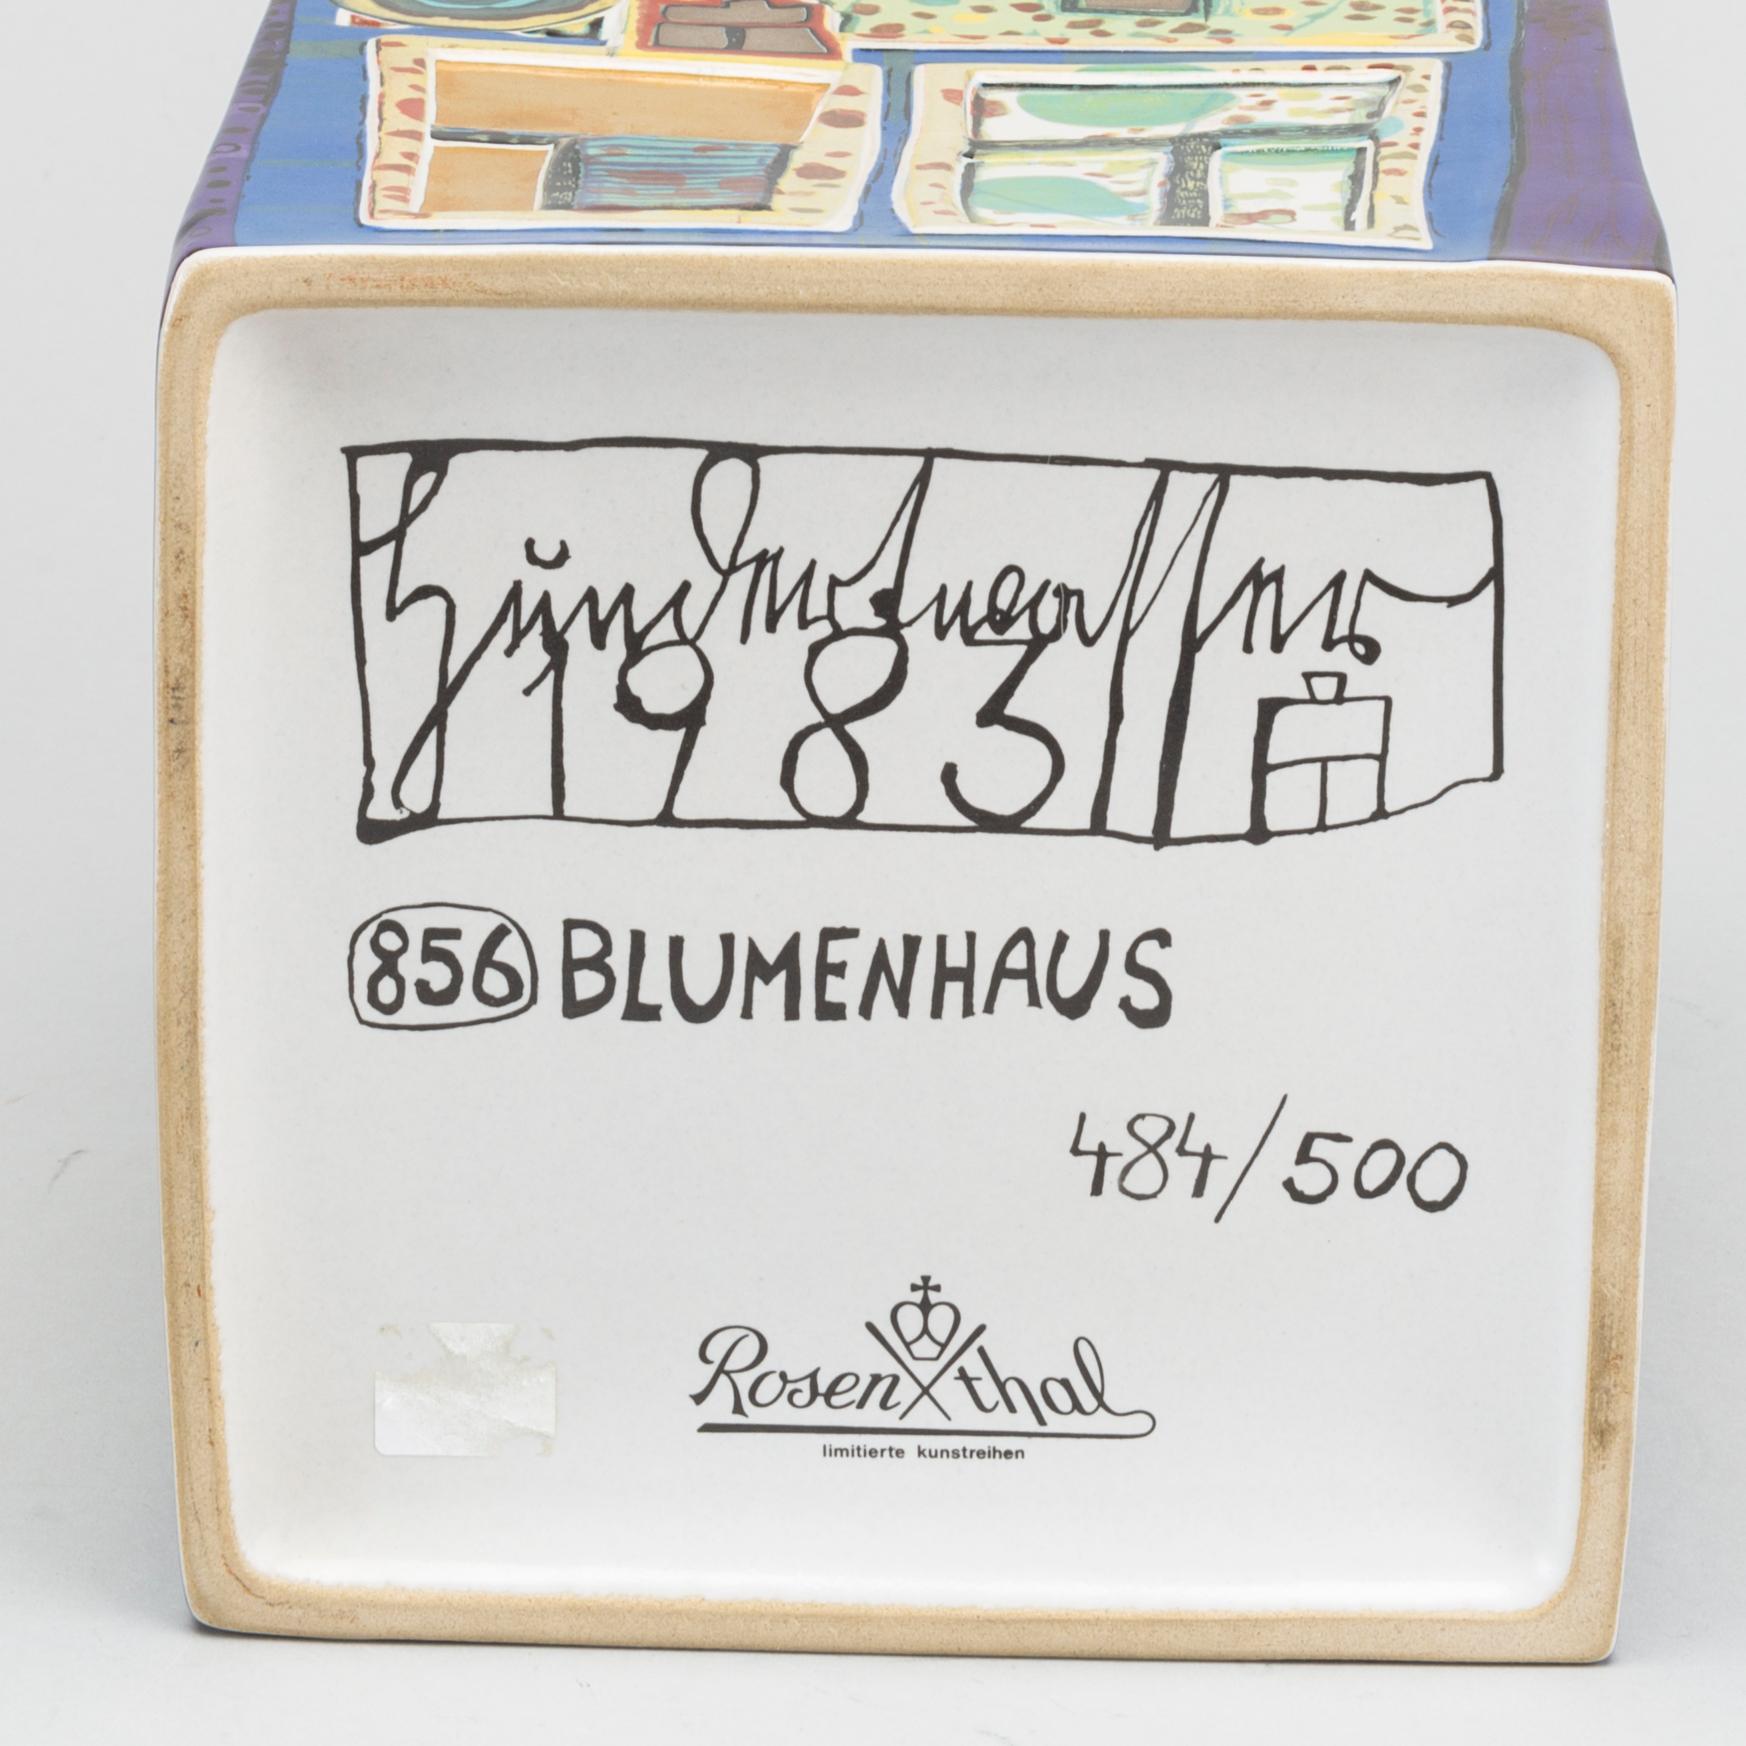 Hŭndertwasser
1983
856 BLUMENHAUS
484/500
Rosenthal
limitierte kunstreihen